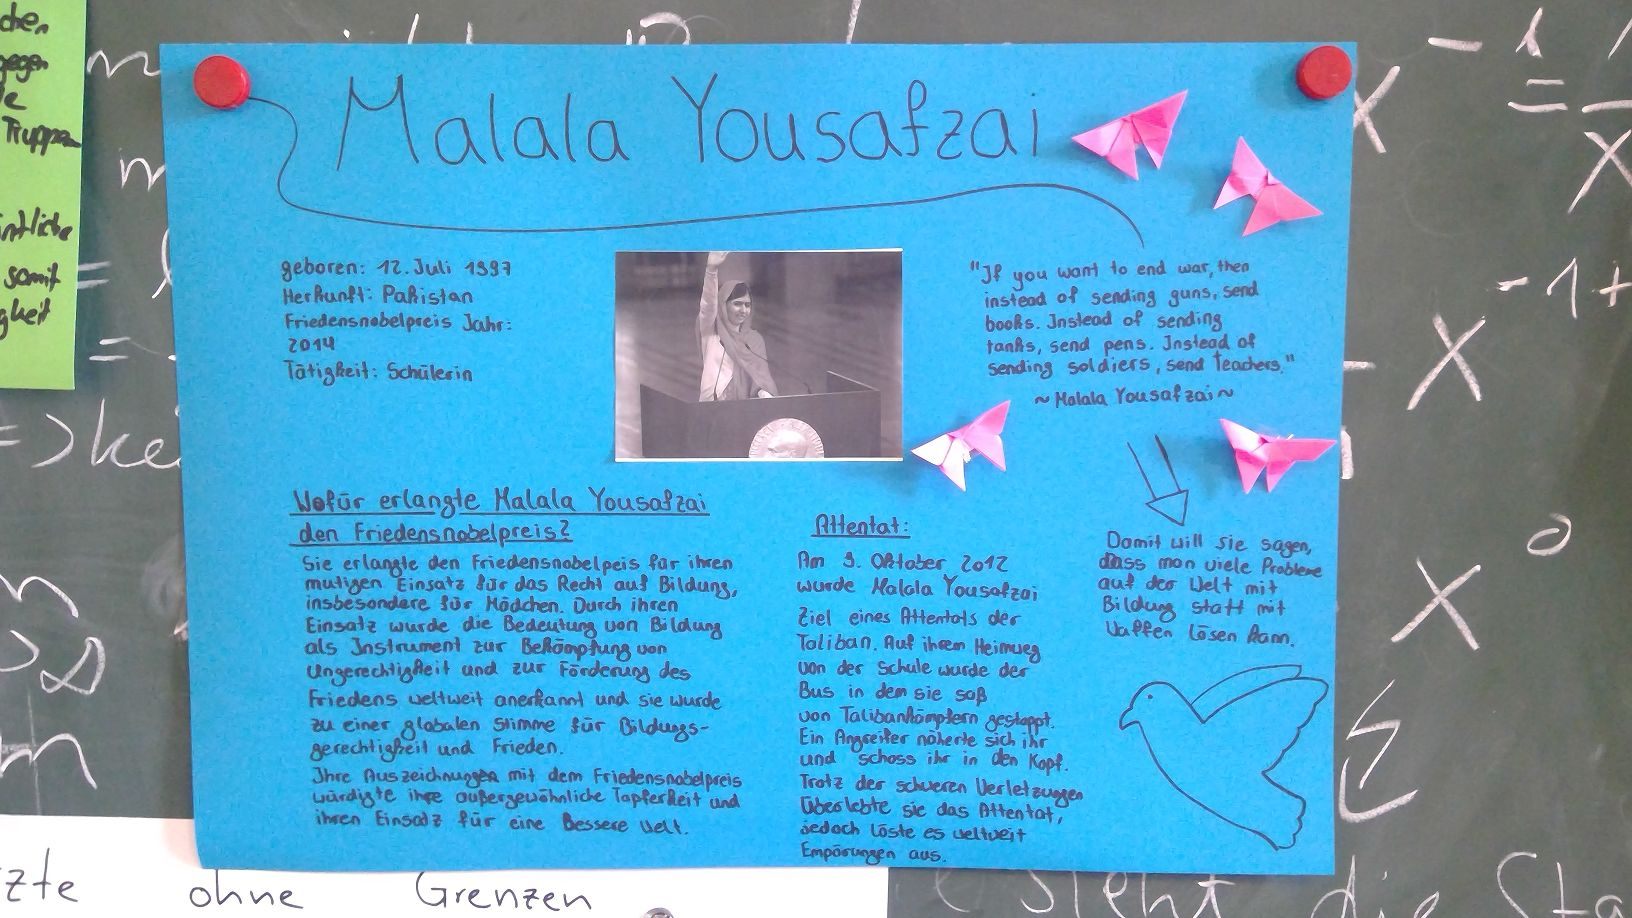 Malala Yousafzai
geboren: 12. Juli 1997
Herkunft: Pakistan
Friedensnobelpreis Jahr:
2014
Tätigkeit: Schülerin
"If you want to end war, then
instead of sending guns, send
books. Instead of sending
tanks, send pens. Instead of
sending soldiers, send teachers."
~Malala Yousafzai~
Wofür erlangte Malala Yousafzai
den Friedensnobelpreis?
Sie erlangte den Friedensnobelpeis für ihren
mutigen Einsatz für das Recht auf Bildung,
insbesondere für Mädchen. Durch ihren
Einsatz wurde die Bedeutung von Bildung
als Instrument zur Bekämpfung von
Ungerechtigkeit und zur Förderung des
Friedens weltweit anerkannt und sie wurde
zu einer globalen Stimme für Bildungs-
gerechtigkeit und Frieden.
Ihre Auszeichnungen mit dem Friedensnobelpreis
würdigte ihre außergewöhnliche Tapferkeit und
ihren Einsatz für eine Bessere Welt.
Attentat:
Am 9. Oktober 2012
wurde Malala Yousafzai
Ziel eines Attentats der
Taliban. Auf ihrem Heimweg
von der Schule wurde der
Bus in dem sie saß
von Talibankämpfern gestoppt.
Ein Angreifer näherte sich ihr
und schoss ihr in den Kopf.
Trotz der schweren Verletzungen
Überlebte sie das Attentat,
jedoch löste es weltweit
Empörungen aus.
Damit will sie sagen,
dass man viele Probleme
auf der Welt mit
Bildung statt mit
Waffen lösen kann.
chen
gegen
le
Truppen
ntliche
somit
gkeit
zte ohne Grenzen
steht die Sta